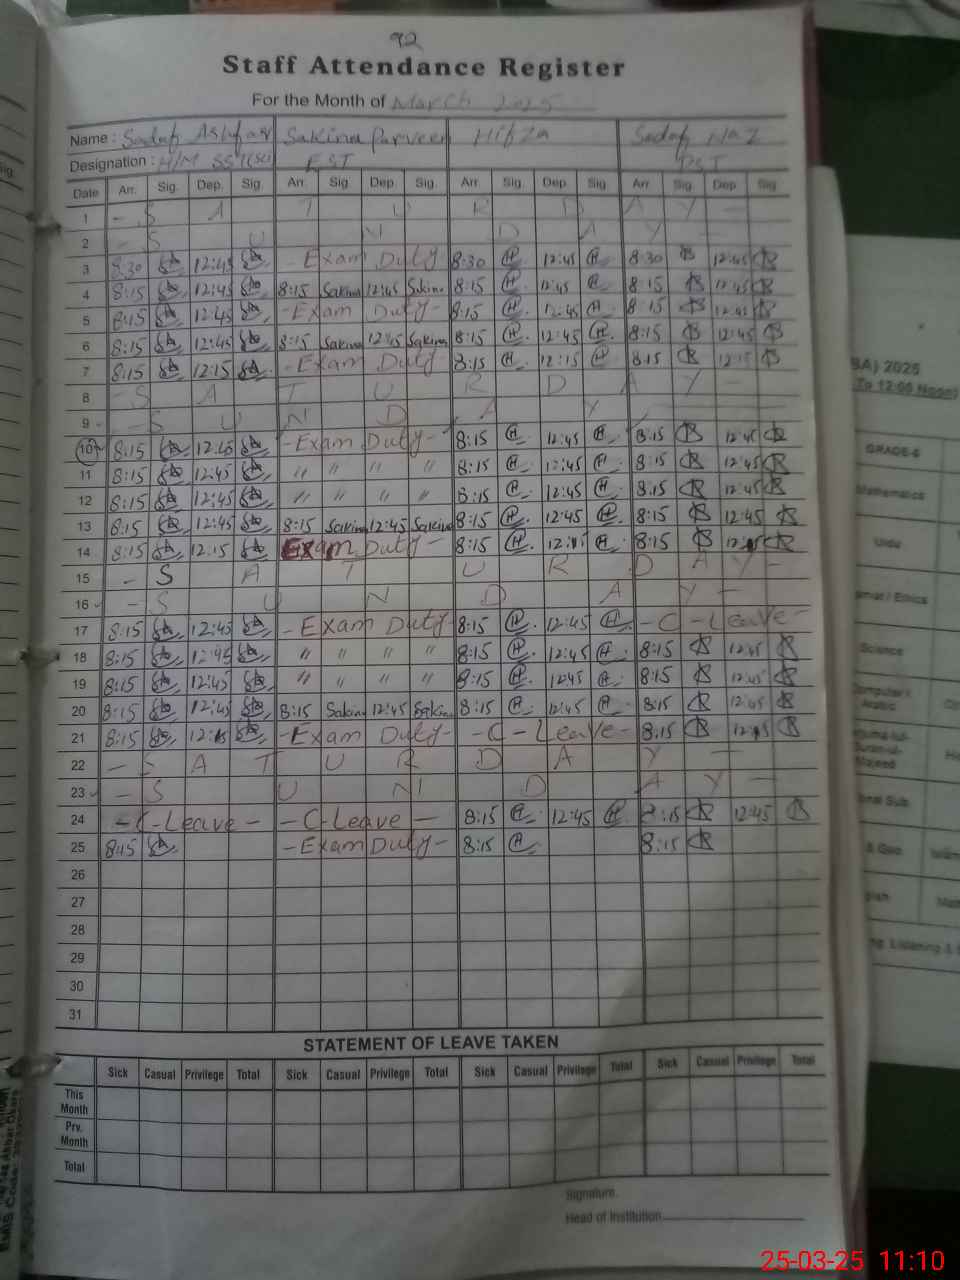 92
Staff Attendance Register
For the Month of March 2025
Name : Sadaf Ashfaq Sakina Parveen Hifza Sadaf Naz
Designation : H/M SST(Sc) EST PST
Date Arr. Sig. Dep. Sig. Arr. Sig. Dep. Sig. Arr. Sig. Dep. Sig. Arr. Sig. Dep. Sig.
1 - S A T U R D A Y -
2 - S U N D A Y -
3 8:30 12:45 - Exam Duty - 8:30 12:45 8:30 12:45
4 8:15 12:45 8:15 Sakina 12:45 Sakina 8:15 12:45 8:15 12:45
5 8:15 12:45 - Exam Duty - 8:15 12:45 8:15 12:45
6 8:15 12:45 8:15 Sakina 12:45 Sakina 8:15 12:45 8:15 12:45
7 8:15 12:15 - Exam Duty - 8:15 12:15 8:15 12:15
8 - S A T U R D A Y -
9 - S U N D A Y -
10 8:15 12:45 - Exam Duty - 8:15 12:45 8:15 12:45
11 8:15 12:45 " " " " 8:15 12:45 8:15 12:45
12 8:15 12:45 " " " " 8:15 12:45 8:15 12:45
13 8:15 12:45 8:15 Sakina 12:45 Sakina 8:15 12:45 8:15 12:45
14 8:15 12:15 Exam Duty - 8:15 12:15 8:15 12:15
15 - S A T U R D A Y -
16 - S U N D A Y -
17 8:15 12:45 - Exam Duty - 8:15 12:45 - C - Leave -
18 8:15 12:45 " " " " 8:15 12:45 8:15 12:45
19 8:15 12:45 " " " " 8:15 12:45 8:15 12:45
20 8:15 12:45 8:15 Sakina 12:45 Sakina 8:15 12:45 8:15 12:45
21 8:15 12:15 - Exam Duty - - C - Leave - 8:15 12:15
22 - S A T U R D A Y -
23 - S U N D A Y -
24 - C - Leave - - C - Leave - 8:15 12:45 8:15 12:45
25 8:15 - Exam Duty - 8:15 8:15
26
27
28
29
30
31
STATEMENT OF LEAVE TAKEN
Sick Casual Privilege Total Sick Casual Privilege Total Sick Casual Privilege Total Sick Casual Privilege Total
This Month
Prv. Month
Total
Signature
Head of Institution
2025
To 12:00 Noon)
GRADE-6
Mathematics
Urdu
/ Ethics
Science
Computer /
Arabic
25-03-25 11:10